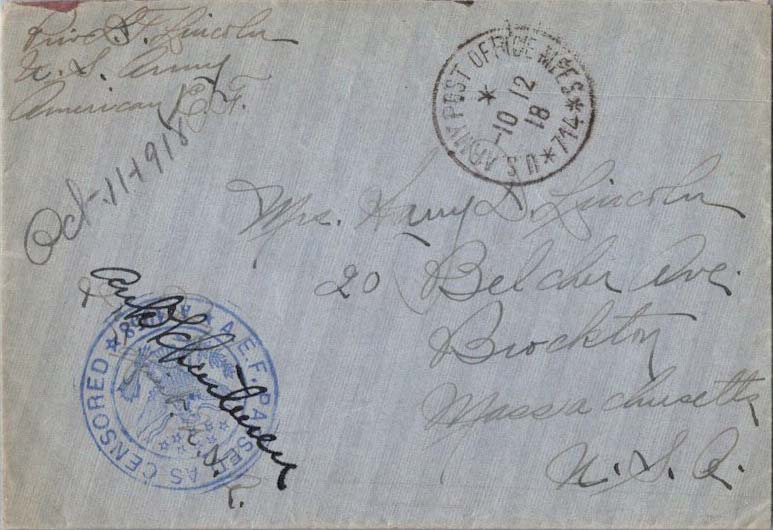 Priv. S. F. Lincoln
U. S. Army
American E. F.
Oct 11-1918
U.S. ARMY POST OFFICE M.P.E.S. * 714 *
10 12
18
Mrs. Harry D. Lincoln
20 Belcher Ave.
Brockton
Massachusetts
U. S. A.
A.E.F. PASSED AS CENSORED